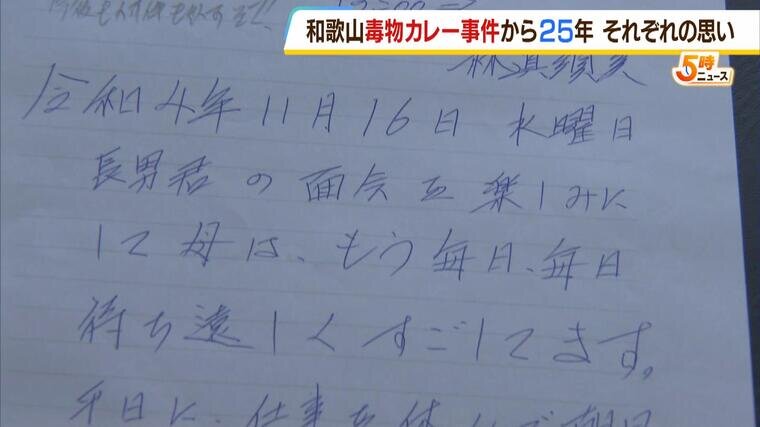 和歌山毒物カレー事件から25年 それぞれの思い
5時
ニュース
林眞須美
令和4年11月16日 水曜日
長男君の面会を楽しみに
して母は、もう毎日、毎日
待ち遠しくすごしてます。
平日に、仕事を休んで朝日